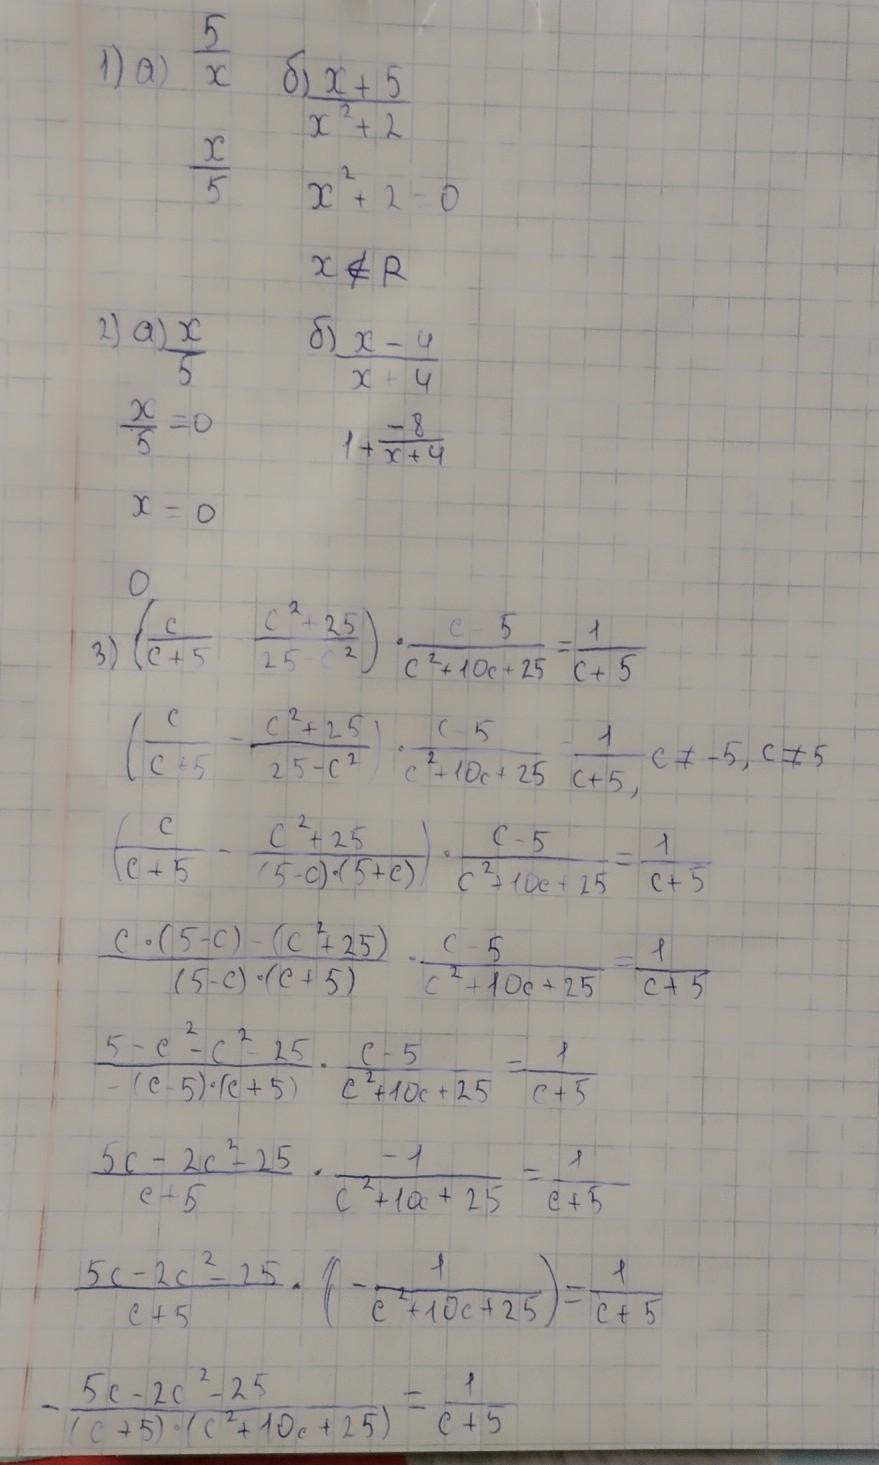 1) а) 5/x б) (x + 5)/(x² + 2)
x/5 x² + 2 = 0
x ∉ R
2) а) x/5 б) (x - 4)/(x + 4)
x/5 = 0 1 + (-8)/(x+4)
x = 0
0
3) (c/(c+5) (c²+25)/(25-c²)) · (c-5)/(c²+10c+25) = 1/(c+5)
(c/(c+5) - (c²+25)/(25-c²)) · (c-5)/(c²+10c+25) = 1/(c+5), c ≠ -5, c ≠ 5
(c/(c+5) - (c²+25)/((5-c)·(5+c))) · (c-5)/(c²+10c+25) = 1/(c+5)
(c·(5-c)-(c²+25))/((5-c)·(c+5)) · (c-5)/(c²+10c+25) = 1/(c+5)
(5-c²-c²-25)/(-(c-5)·(c+5)) · (c-5)/(c²+10c+25) = 1/(c+5)
(5c-2c²-25)/(c+5) · (-1)/(c²+10c+25) = 1/(c+5)
(5c-2c²-25)/(c+5) · (-1/(c²+10c+25)) = 1/(c+5)
-(5c-2c²-25)/((c+5)·(c²+10c+25)) = 1/(c+5)